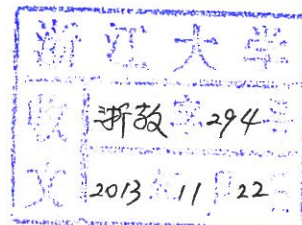 浙江大学
收文
浙教字294号
2013年11月22日